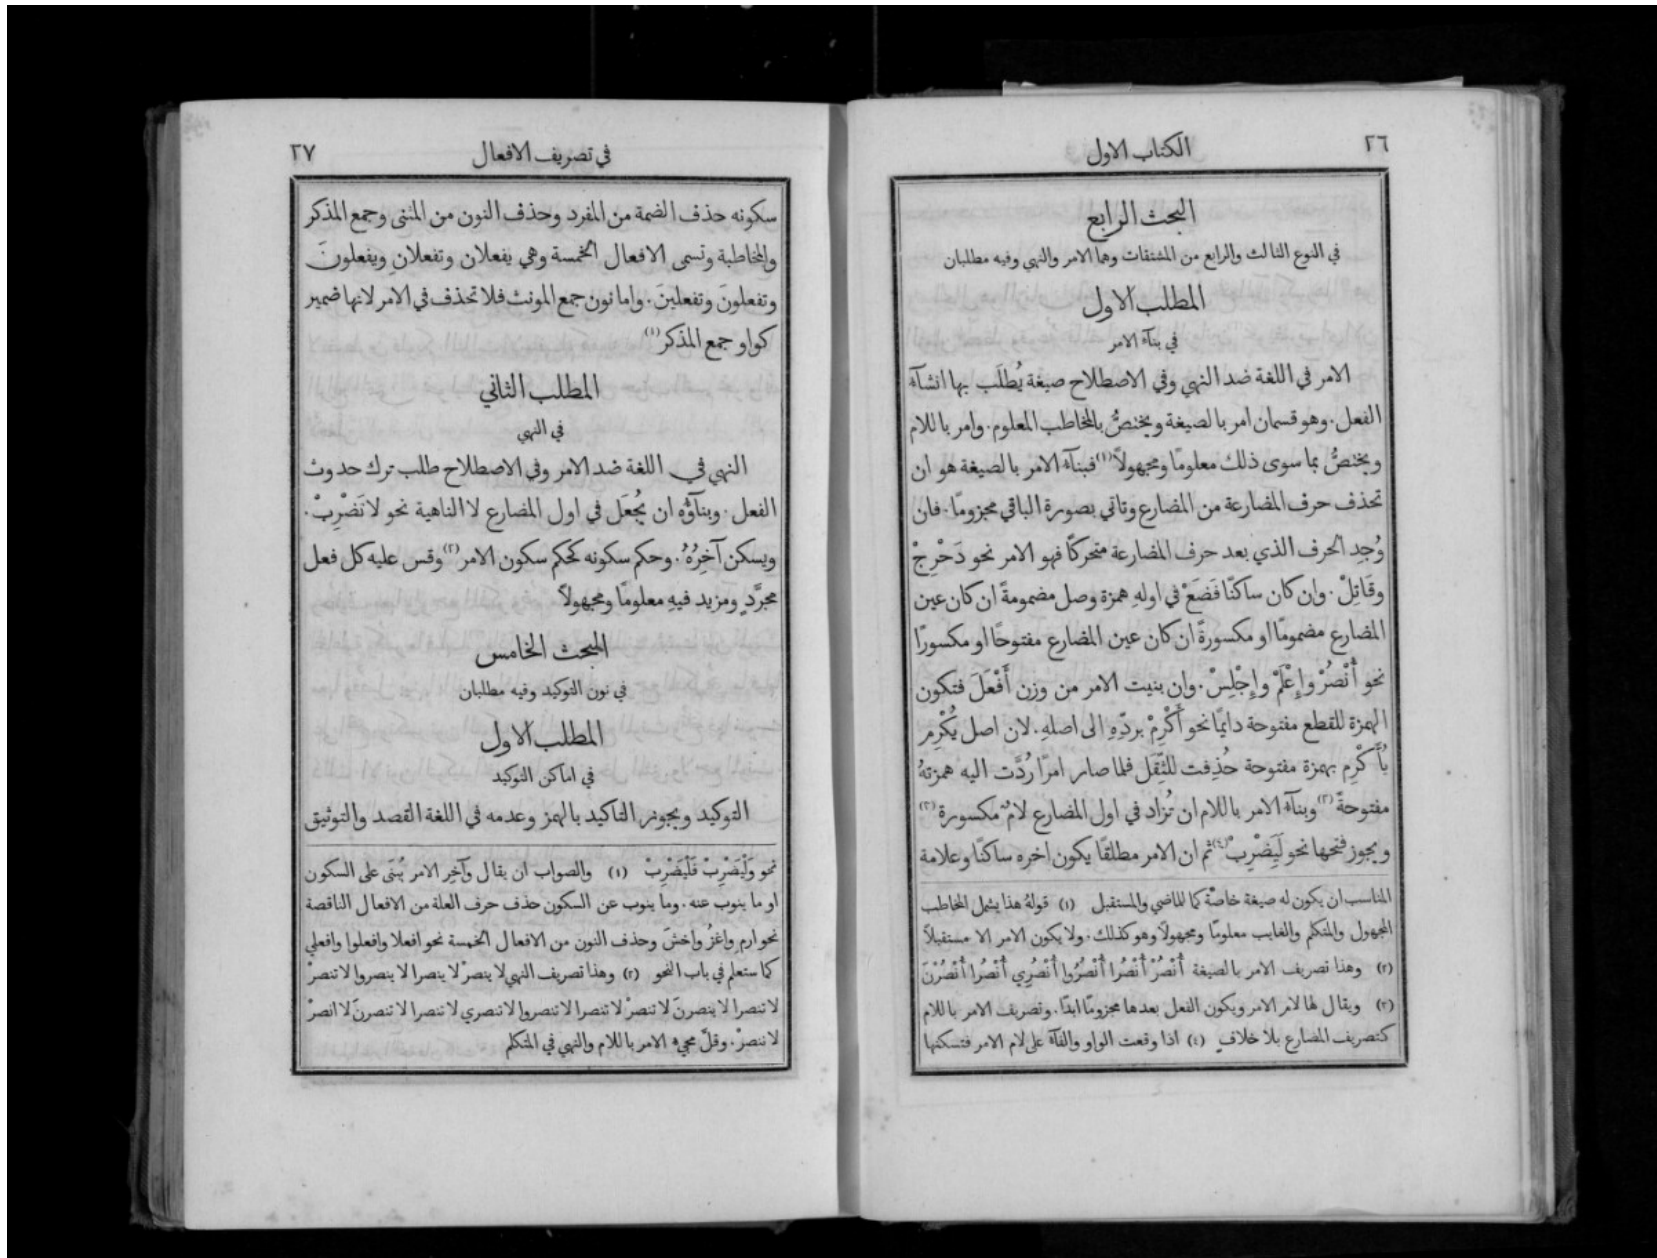 ٢٦
الكتاب الاول
البحث الرابع
في النوع الثالث والرابع من المشتقات وهما الامر والنهي وفيه مطلبان
المطلب الاول
في بنآء الامر
الامر في اللغة ضد النهي وفي الاصطلاح صيغة يُطلَب بها انشآء
الفعل. وهو قسمان امر بالصيغة ويختصُّ بالمخاطب المعلوم. وامر باللام
ويختصُّ بما سوى ذلك معلومًا ومجهولاً (١) فبنآء الامر بالصيغة هو ان
تحذف حرف المضارعة من المضارع وتاتي بصورة الباقي مجزومًا. فان
وُجِد الحرف الذي بعد حرف المضارعة متحركًا فهو الامر نحو دَحْرِجْ
وقَاتِلْ. وان كان ساكنًا فَضَعْ في اولهِ همزة وصل مضمومةً ان كان عين
المضارع مضمومًا او مكسورةً ان كان عين المضارع مفتوحًا او مكسورًا
نحو أُنْصُرْ وإِعْلَمْ وإِجْلِسْ. وان بنيت الامر من وزن أَفْعَلَ فتكون
الهمزة للقطع مفتوحة دايمًا نحو أَكْرِمْ بردِّهِ الى اصلهِ. لان اصل يُكْرِم
يُأَكْرِم بهمزة مفتوحة حُذِفت للثِّقَل فلما صار امرًا رُدَّت اليه همزتهُ
مفتوحةً (٢) وبنآء الامر باللام ان تُزاد في اول المضارع لامٌ مكسورة (٣)
ويجوز فتحها نحو لَيَضْرِبْ (٤) ثم ان الامر مطلقًا يكون اخره ساكنًا وعلامة
المناسب ان يكون له صيغة خاصَّة كما للماضي والمستقبل (١) قولهُ هذا يشمل المخاطب
المجهول والمتكلم والغايب معلومًا ومجهولاً وهو كذلك. ولا يكون الامر الا مستقبلاً
(٢) وهذا تصريف الامر بالصيغة أُنْصُرْ أُنْصُرَا أُنْصُرُوا أُنْصُرِي أُنْصُرَا أُنْصُرْنَ
(٣) ويقال لها لامر الامر ويكون الفعل بعدها مجزومًا ابدًا. وتصريف الامر باللام
كتصريف المضارع بلا خلافٍ (٤) اذا وقعت الواو والفآء على لام الامر فتسكنها
في تصريف الافعال
٢٧
سكونه حذف الضمة من المفرد وحذف النون من المثنى وجمع المذكر
والمخاطبة وتسمى الافعال الخمسة وهي يفعلان وتفعلانِ ويفعلونَ
وتفعلونَ وتفعلينَ. واما نون جمع المونث فلا تحذف في الامر لانها ضمير
كواو جمع المذكر (١)
المطلب الثاني
في النهي
النهي في اللغة ضد الامر وفي الاصطلاح طلب ترك حدوث
الفعل. وبنآؤه ان يُجعَل في اول المضارع لا الناهية نحو لا تَضْرِبْ.
ويسكن آخِرُهُ. وحكم سكونه كحكم سكون الامر (٢) وقس عليه كل فعل
مجرَّدٍ ومزيد فيهِ معلومًا ومجهولاً
المبحث الخامس
في نون التوكيد وفيه مطلبان
المطلب الاول
في اماكن التوكيد
التوكيد ويجوز التاكيد بالهمز وعدمه في اللغة القصد والتوثيق
نحو وَلْيَضْرِبْ فَلْيَضْرِبْ (١) والصواب ان يقال وآخِر الامر يُبنَى على السكون
او ما ينوب عنه. وما ينوب عن السكون حذف حرف العلة من الافعال الناقصة
نحو ارمِ واغزُ واخشَ وحذف النون من الافعال الخمسة نحو افعلا وافعلوا وافعلي
كما ستعلم في باب النحو (٢) وهذا تصريف النهي لا ينصرْ لا ينصرا لا ينصروا لا تنصرْ
لا تنصرا لا ينصرنَ لا تنصرْ لا تنصرا لا تنصروا لا تنصري لا تنصرا لا تنصرنَ لا انصرْ
لا ننصرْ. وقلَّ مجيء الامر باللام والنهي في المتكلم